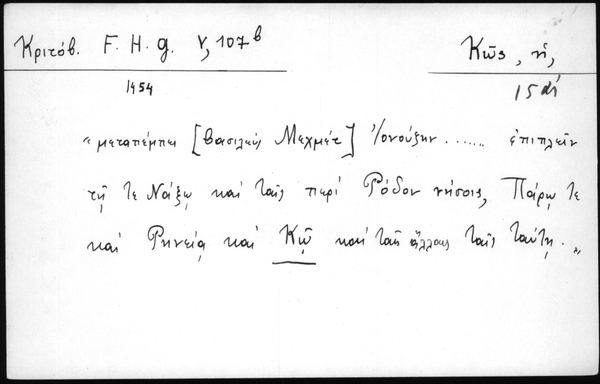 Κριτόβ. F. H. g. V, 107 b
Κῶς, ἡ,
1454
15 αἰ
"μεταπέμπει [βασιλεὺς Μεχμέτ] Ἰονούζην ....... ἐπιπλεῖν
τῇ τε Νάξῳ καὶ ταῖς περὶ Ρόδον νήσοις, Πάρῳ τε
καὶ Ρηνείᾳ καὶ Κῷ καὶ ταῖς ἄλλαις ταῖς ταύτῃ."